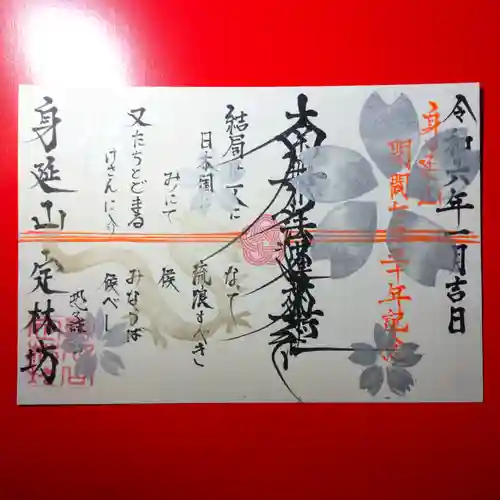 令和六年一月吉日
身延山
開闢七五十年記念
南無妙法蓮華経
結局は一人に
なって
日本国に
流浪すべき
みにて
候
又たちとどまる
みならば
けさんに入
候べし
恐々謹言
身延山 定林坊